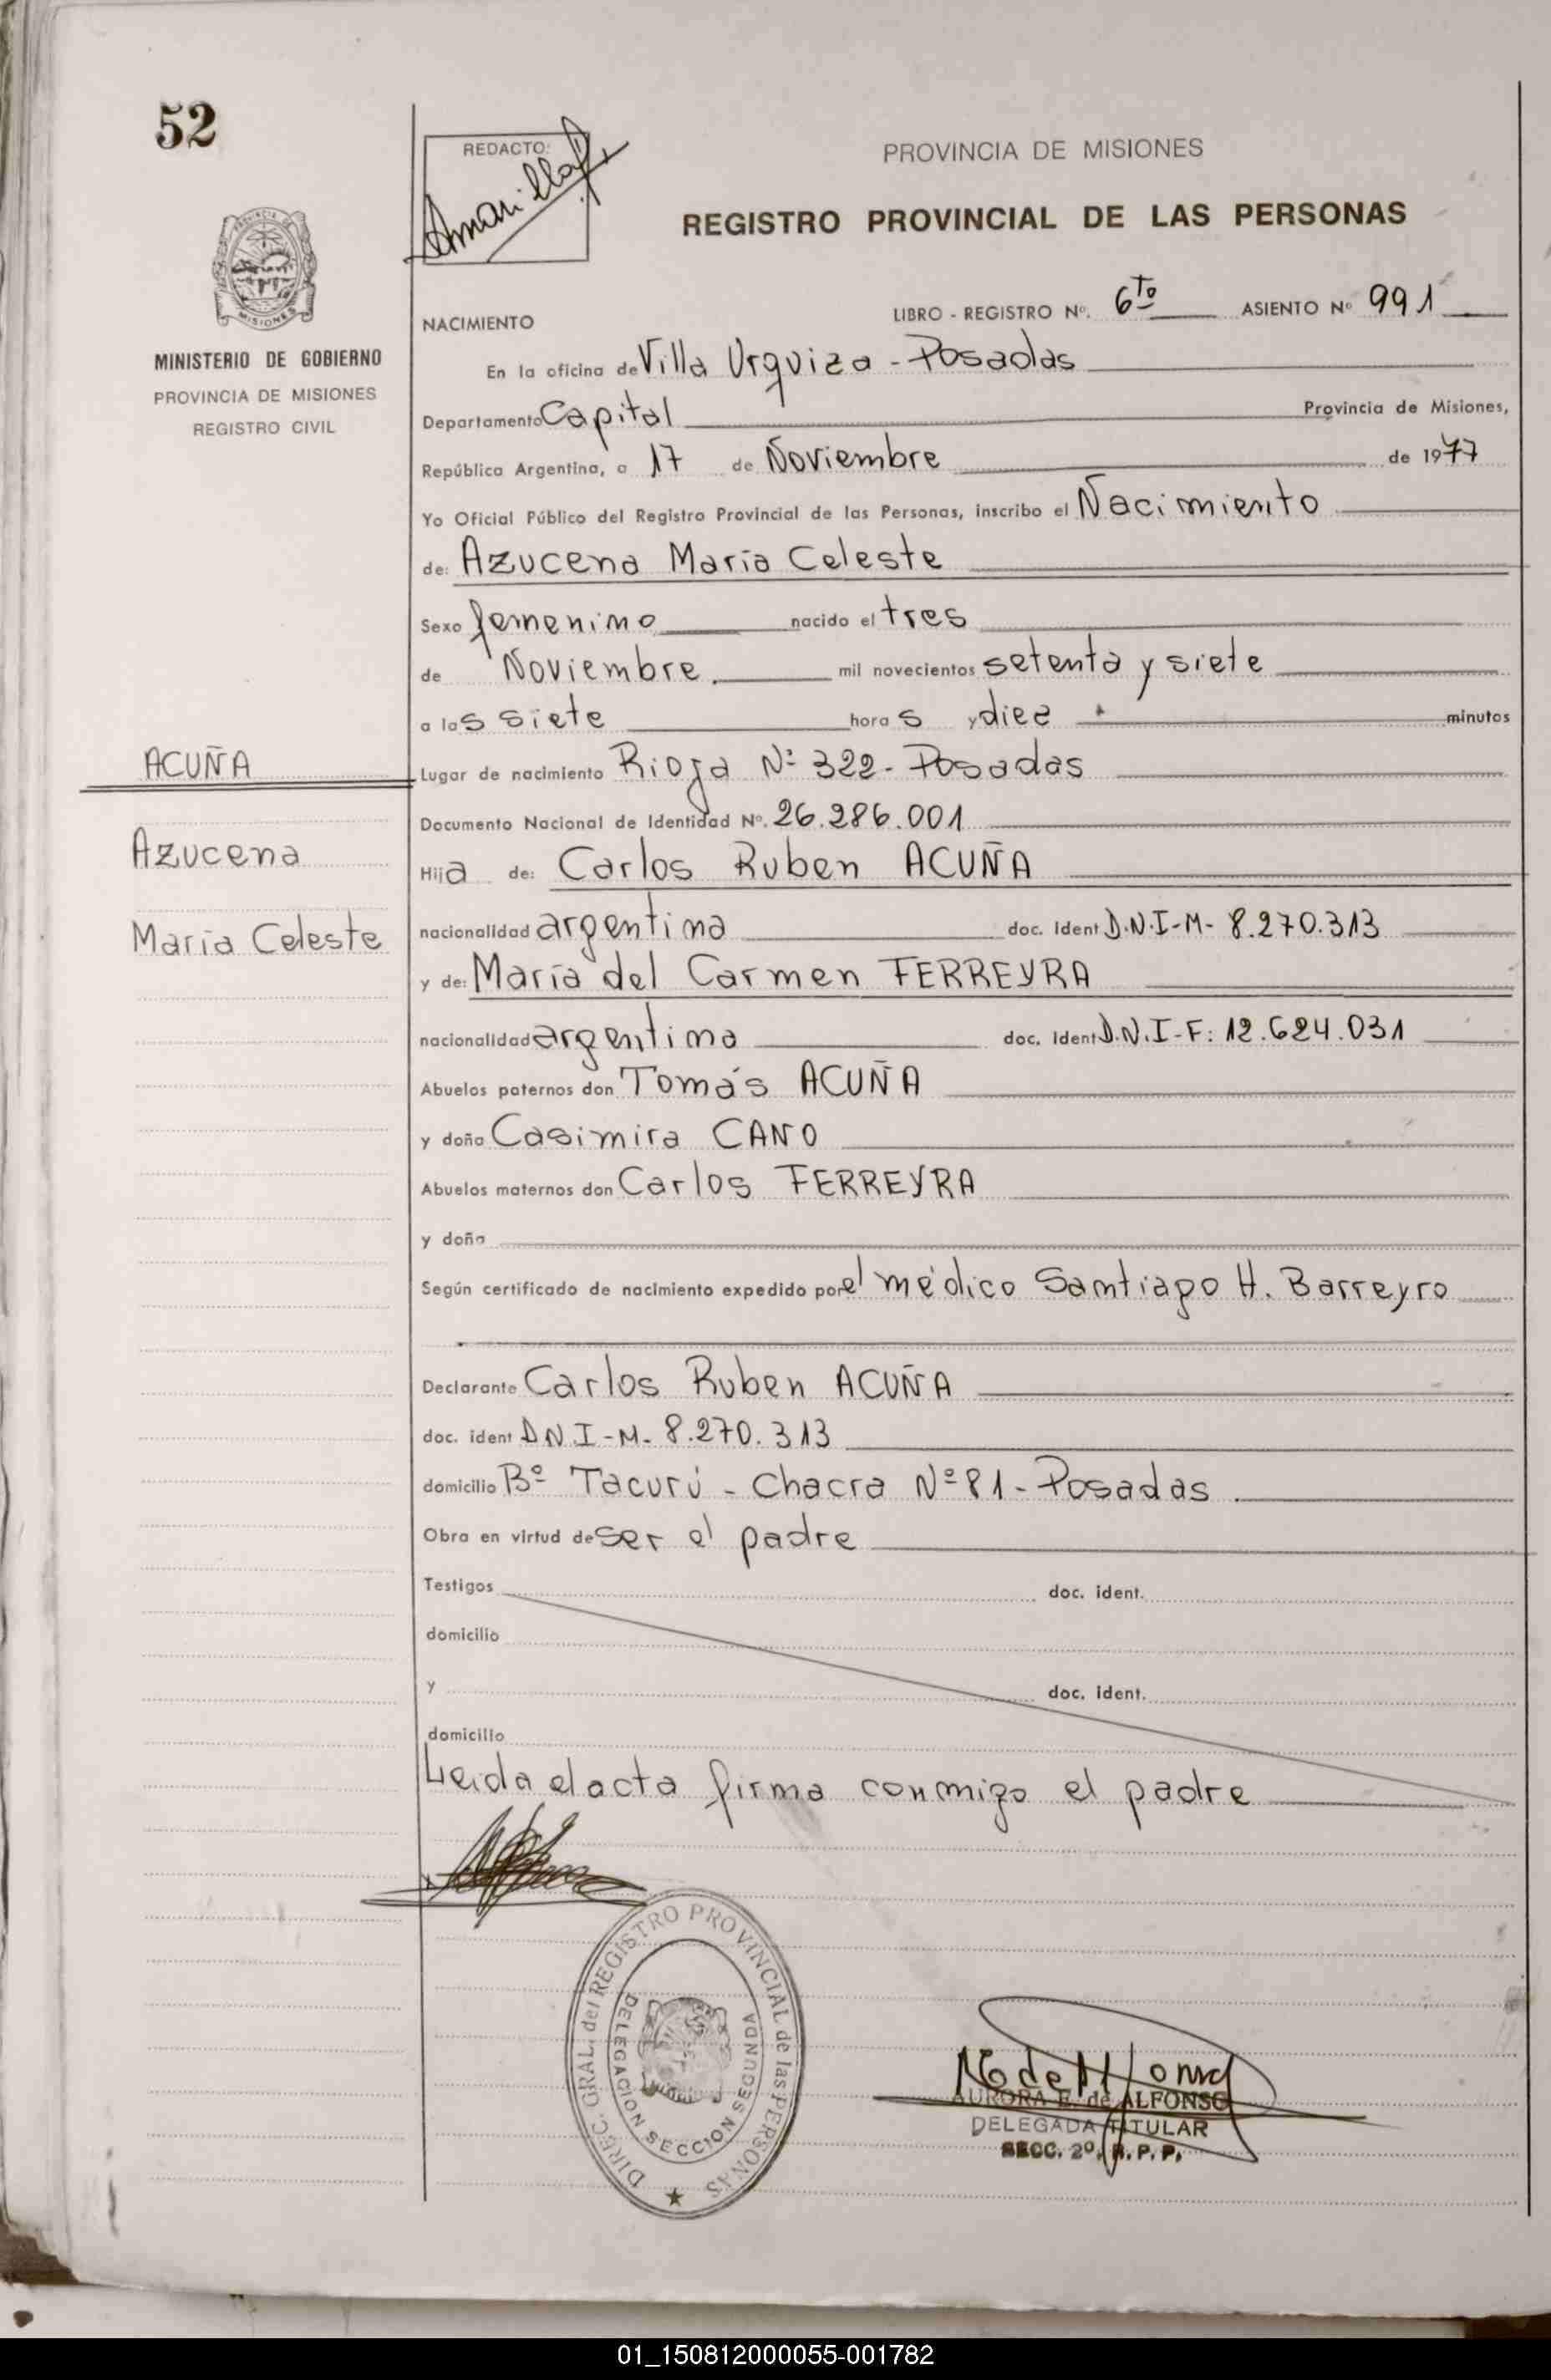 52
REDACTO:
Amarilla
PROVINCIA DE MISIONES
REGISTRO PROVINCIAL DE LAS PERSONAS
MISIONES
MINISTERIO DE GOBIERNO
PROVINCIA DE MISIONES
REGISTRO CIVIL
LIBRO - REGISTRO Nº. 6to ASIENTO Nº 991
NACIMIENTO
En la oficina de Villa Urquiza - Posadas
Departamento Capital Provincia de Misiones,
República Argentina, a 17 de Noviembre de 1977
Yo Oficial Público del Registro Provincial de las Personas, inscribo el Nacimiento
de: Azucena María Celeste
Sexo femenino nacido el tres
de Noviembre mil novecientos setenta y siete
a las siete horas y diez minutos
ACUÑA
Lugar de nacimiento Rioja Nº 322 - Posadas
Documento Nacional de Identidad Nº. 26.286.001
Azucena
Hija de: Carlos Ruben ACUÑA
María Celeste
nacionalidad argentina doc. Ident D.N.I-M- 8.270.313
y de: María del Carmen FERREYRA
nacionalidad argentina doc. Ident D.N.I-F: 12.624.031
Abuelos paternos don Tomás ACUÑA
y doña Casimira CANO
Abuelos maternos don Carlos FERREYRA
y doña
Según certificado de nacimiento expedido por el médico Santiago H. Barreyro
Declarante Carlos Ruben ACUÑA
doc. ident D.N.I-M- 8.270.313
domicilio Bº Tacurú - Chacra Nº 81 - Posadas
Obra en virtud de ser el padre
Testigos doc. ident.
domicilio
y doc. ident.
domicilio
Leida el acta firma conmigo el padre
DIREC. GRAL. del REGISTRO PROVINCIAL de las PERSONAS
DELEGACION SECCION SEGUNDA
AURORA E. de ALFONSO
DELEGADA TITULAR
SECC. 2º. R.P.P.
01_150812000055-001782